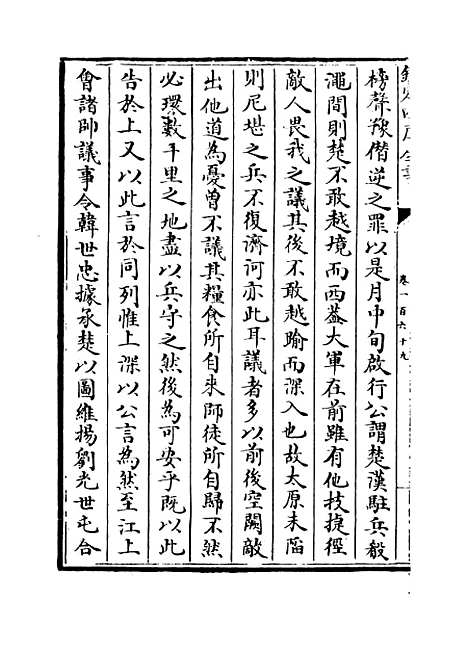 欽定四庫全書
卷一百六十九
榜聲豫僭逆之罪以是月中旬啟行公謂楚漢駐兵殽
澠間則楚不敢越境而西葢大軍在前雖有他技捷徑
敵人畏我之議其後不敢越踰而深入也故太原未䧟
則尼堪之兵不復濟河亦此耳議者多以前後空闕敵
出他道為憂曽不議其糧食所自來師徒所自歸不然
必環數千里之地盡以兵守之然後為可安乎既以此
告於上又以此言於同列惟上深以公言為然至江上
會諸帥議事令韓世忠據承楚以圖維揚劉光世屯合